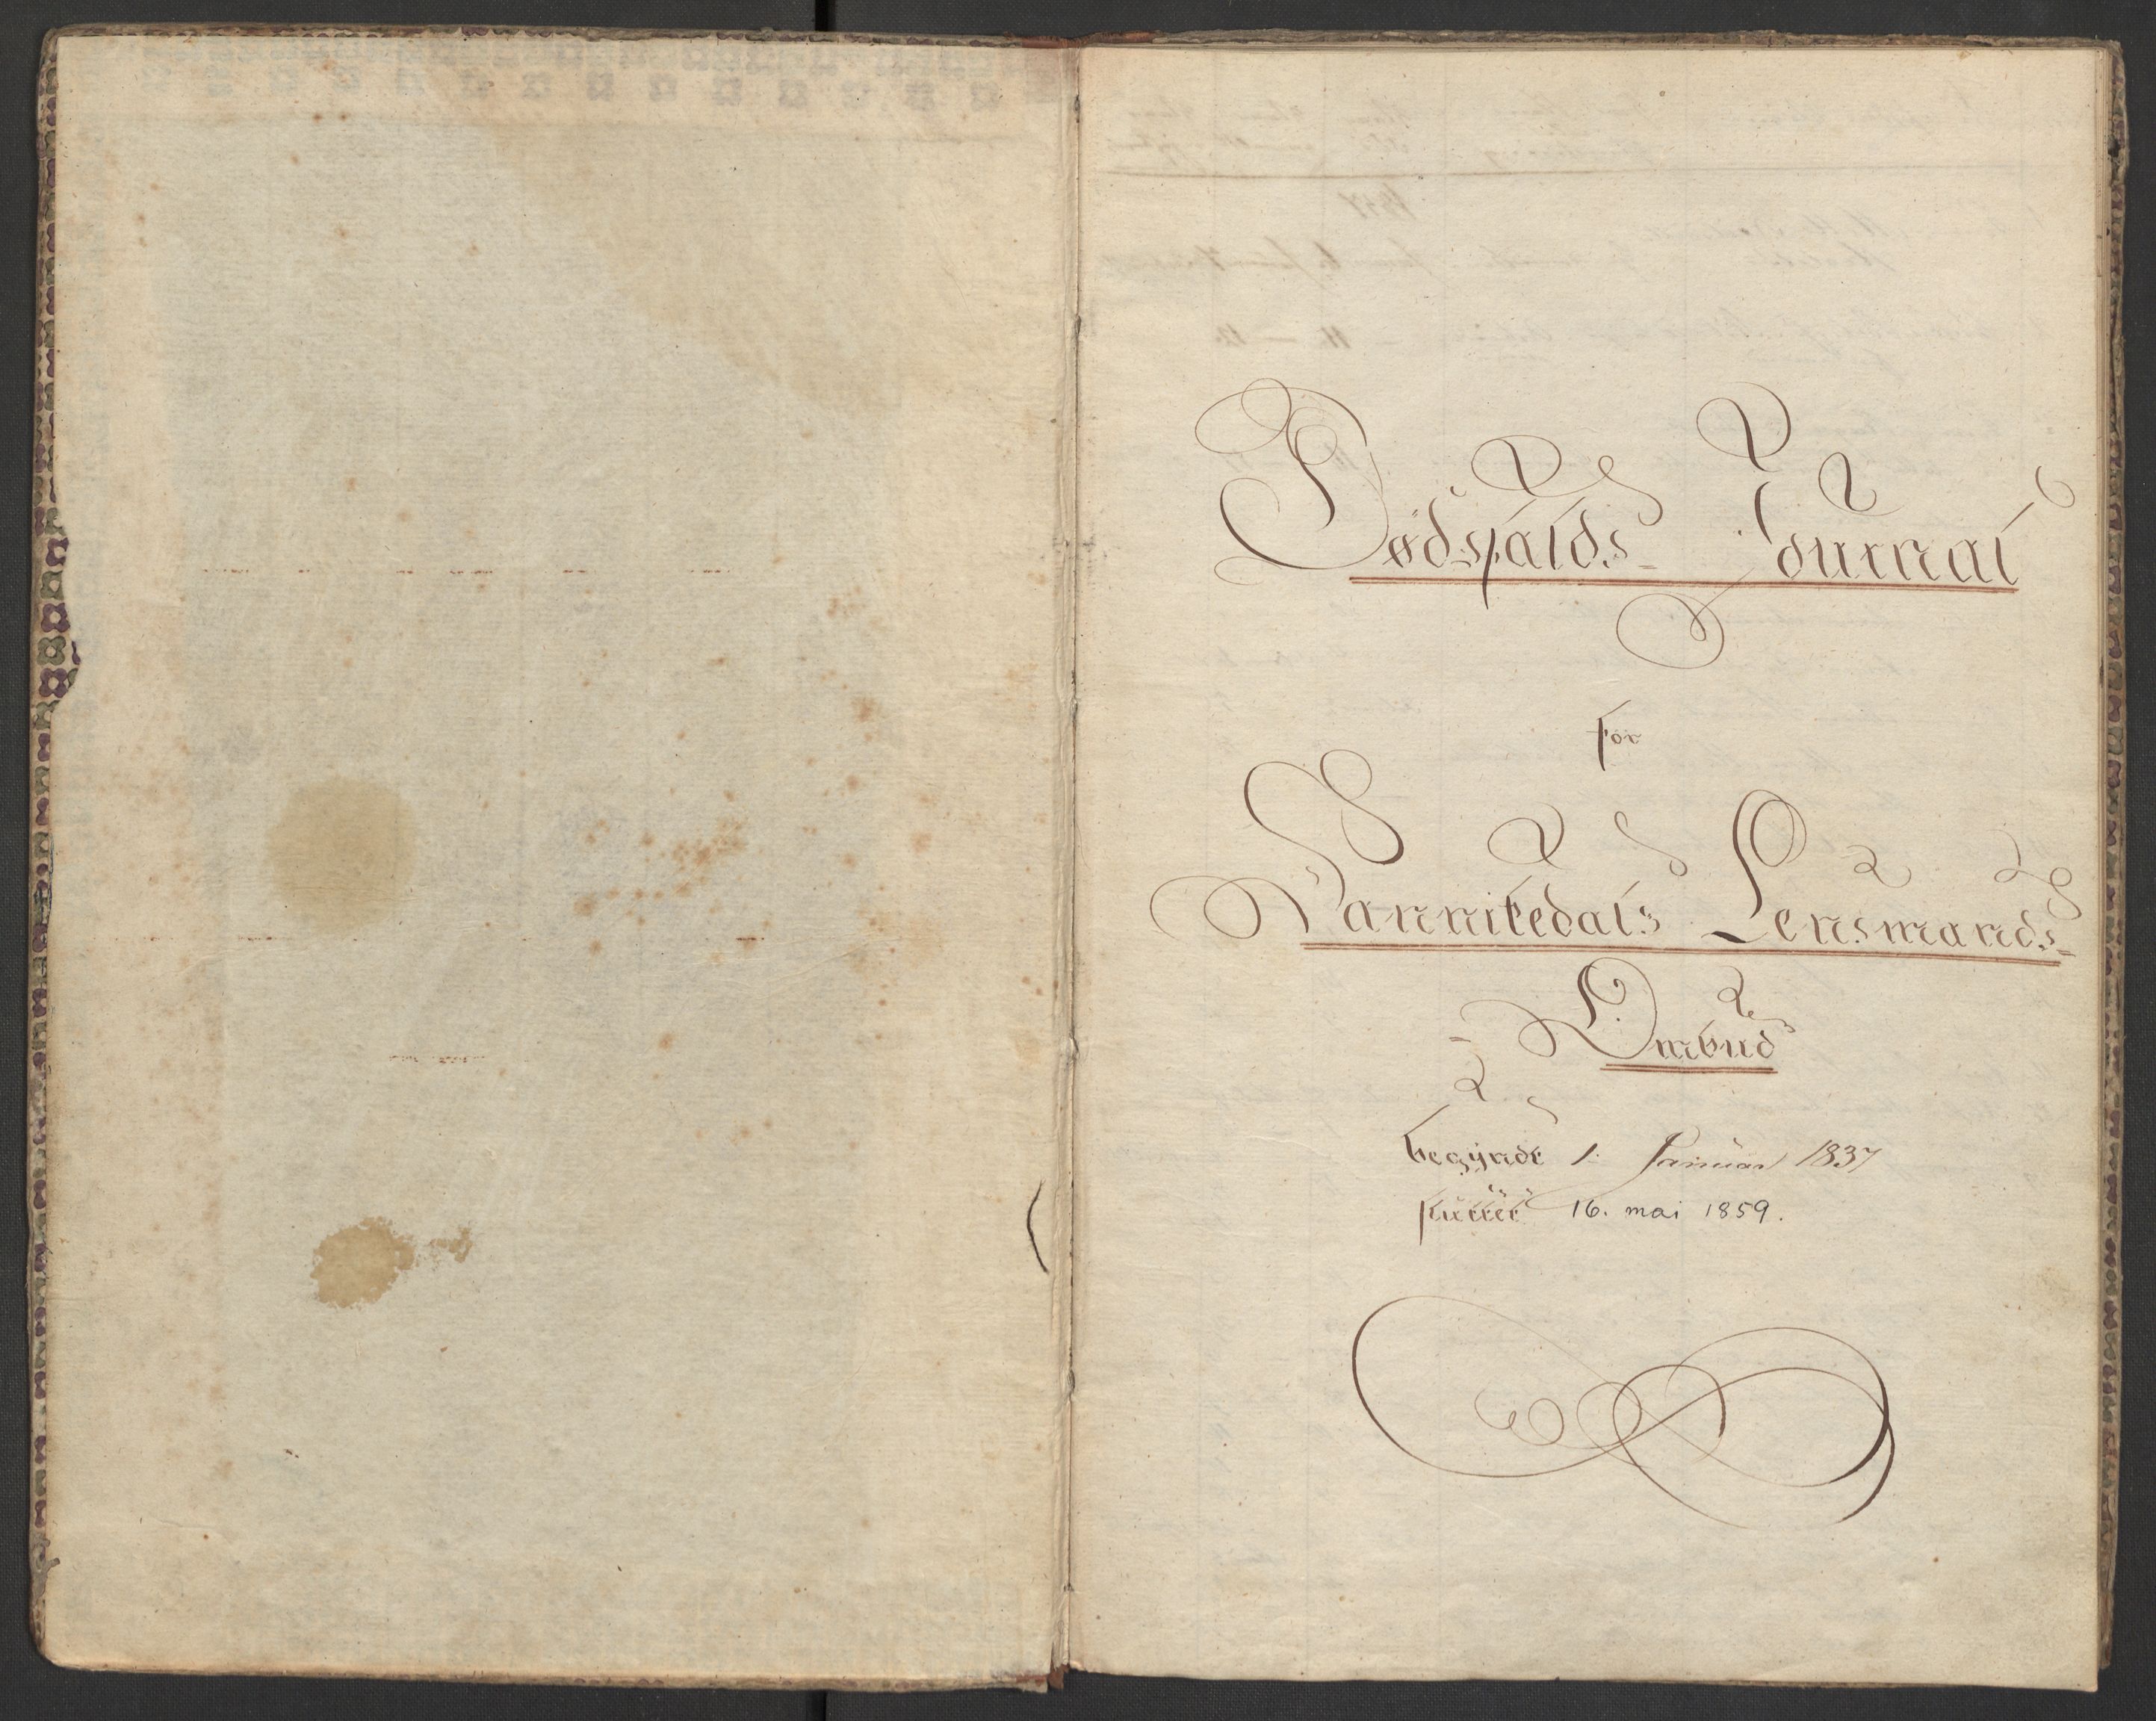 Dødsfalds- Journal
for
Sannikedals Lensmands-
Ombud
begyndt 1. Januar 1837
sluttet 16. mai 1859.